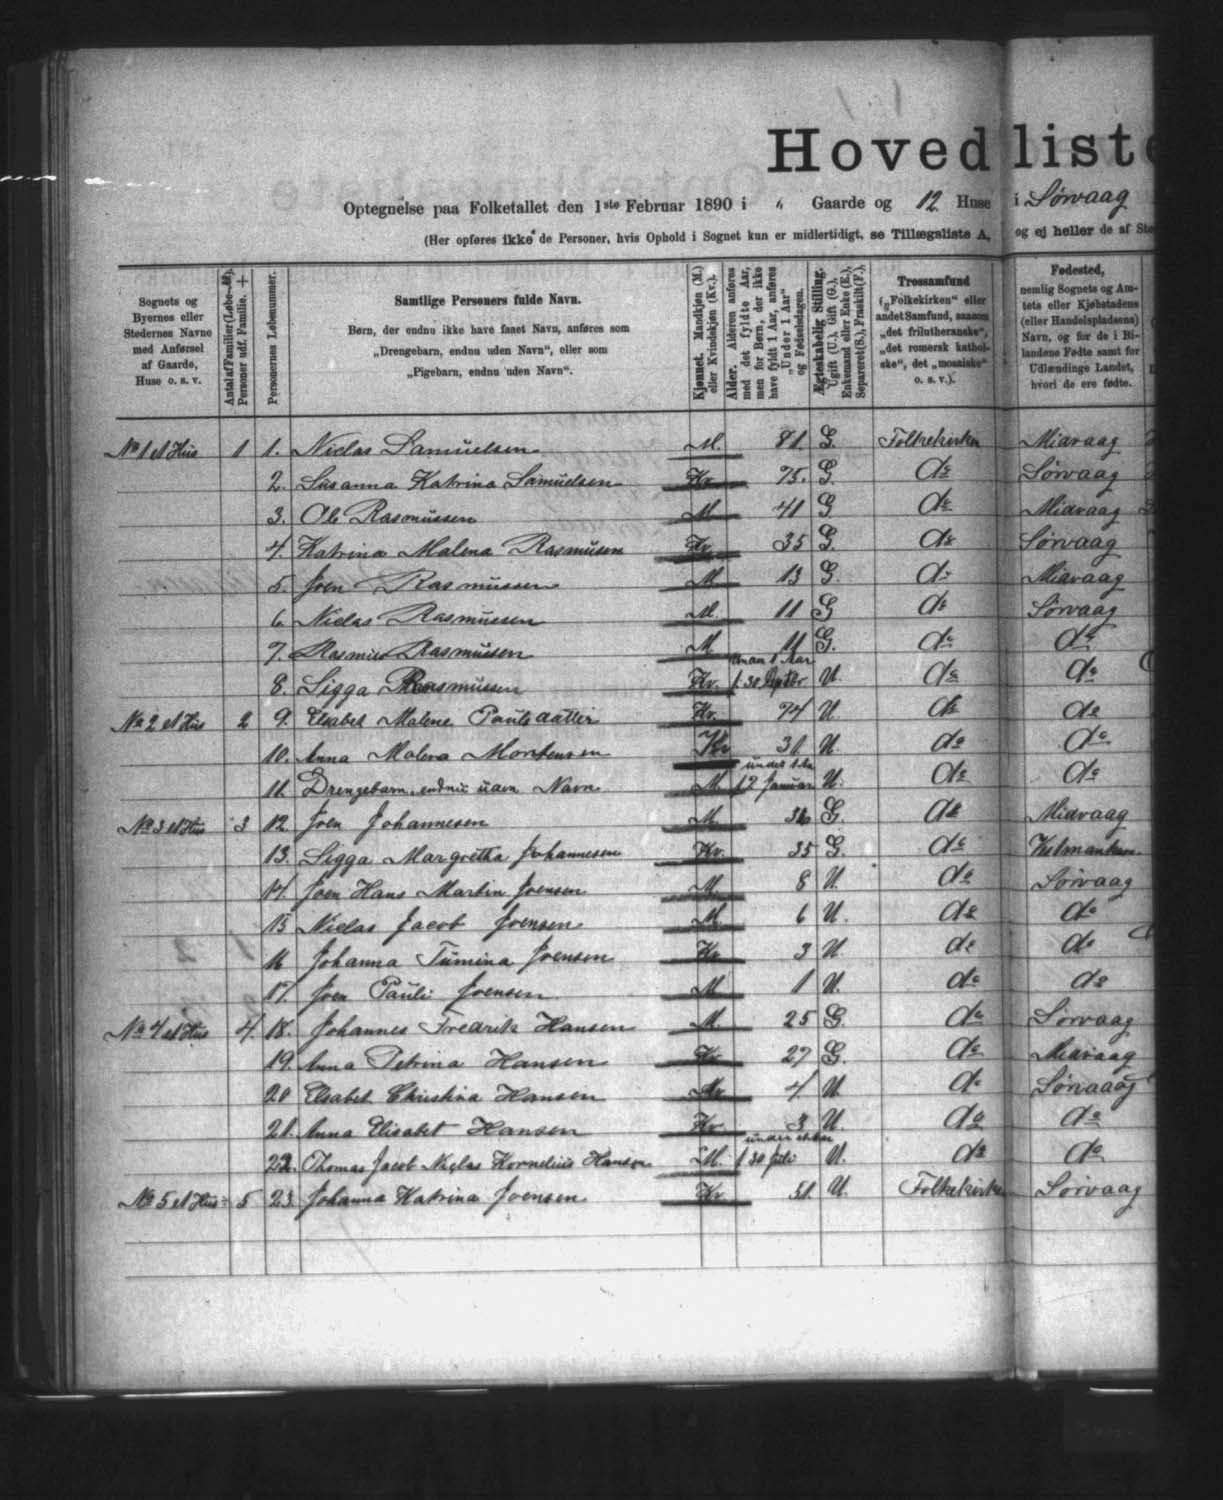 Hovedliste
Optegnelse paa Folketallet den 1ste Februar 1890 i „ Gaarde og 12 Huse i Sørvaag
(Her opføres ikke de Personer, hvis Ophold i Sognet kun er midlertidigt, se Tillægsliste A, og ej heller de af Ste
Sognets og Byernes eller Stedernes Navne med Anførsel af Gaarde, Huse o. s. v.
Antal af Familier (Løbe-№). Personer udf. Familie. +
Personernes Løbenummer.
Samtlige Personers fulde Navn.
Børn, der endnu ikke have faaet Navn, anføres som
„Drengebarn, endnu uden Navn“, eller som
„Pigebarn, endnu uden Navn“.
Kjønnet. Mandkjøn (M.) eller Kvindekjøn (Kv.).
Alder. Alderen anføres med det fyldte Aar, men for Børn, der ikke have fyldt 1 Aar, anføres „Under 1 Aar“ og Fødselsdagen.
Ægteskabelig Stilling. Ugift (U.), Gift (G.), Enkemand eller Enke (E.), Separeret (S.), Fraskilt (F.).
Trossamfund
(„Folkekirken“ eller andet Samfund, saasom „det frilutheranske“, „det romersk katholske“, det „mosaiske“ o. s. v.).
Fødested,
nemlig Sognets og Amtets eller Kjøbstadens (eller Handelspladsens) Navn, og for de i Bilandene Fødte samt for Udlændinge Landet, hvori de ere fødte.
No 1 et Hus 1 1. Niclas Samuelsen M. 81. G. Folkekirken Midvaag
2. Susanna Katrina Samuelsen Kv. 75. G. do Sørvaag
3. Ole Rasmussen M 41 G do Midvaag
4. Katrina Malena Rasmussen Kv. 35 G. do Sørvaag
5. Joen Rasmussen M. 13 G. do Midvaag
6. Niclas Rasmussen M. 11 G do Sørvaag
7. Rasmus Rasmussen M 11 G. do do
8. Sigga Rasmussen Kv. f. 30 Septbr U. do do
No 2 et Hus 2 9. Elsabet Malene Paulsdatter Kv. 74 U. do do
10. Anna Malena Mortensen Kv 31. U. do do
11. Drengebarn, endnu uden Navn M. f. 2 Januar U. do do
No 3 et Hus 3 12. Joen Johannesen M. G. do Midvaag
13. Sigga Margretha Johannesen Kv. 35 G. do
14. Joen Hans Martin Joensen M. 8 U. do Sørvaag
15 Niclas Jacob Joensen M 6 U. do do
16 Johanna Tumina Joensen Kv 3 U. do do
17. Joen Pauli Joensen M 1 U. do do
No 4 et Hus 4. 18. Johannes Fredrik Hansen M. 25 G. do Sørvaag
19. Anna Petrina Hansen Kv 27 G. do Midvaag
20 Elsabet Christina Hansen Kv 4 U. do Sørvaag
21. Anna Elisabet Hansen Kv 3 U. do do
22. Thomas Jacob Niclas Kornelius Hansen M. under et Aar f 30 Juli U. do do
No 5 et Hus 5 23. Johanna Katrina Joensen Kv 51. U. Folkekirken Sørvaag